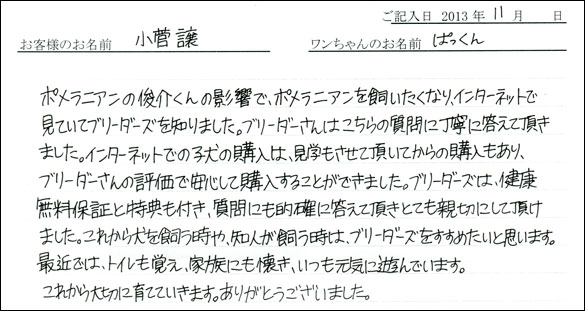 ご記入日 2013年 11月 日
お客様のお名前 小菅 譲 ワンちゃんのお名前 ぱっくん
ポメラニアンの俊介くんの影響で、ポメラニアンを飼いたくなり、インターネットで
見ていてブリーダーズを知りました。ブリーダーさんはこちらの質問に丁寧に答えて頂き
ました。インターネットでの子犬の購入は、見学もさせて頂いてからの購入もあり、
ブリーダーさんの評価で安心して購入することができました。ブリーダーズは、健康
無料保証と特典も付き、質問にも的確に答えて頂きとても親切にして頂け
ました。これから犬を飼う時や、知人が飼う時は、ブリーダーズをすすめたいと思います。
最近では、トイレも覚え、家族にも懐き、いつも元気に遊んでいます。
これから大切に育てていきます。ありがとうございました。